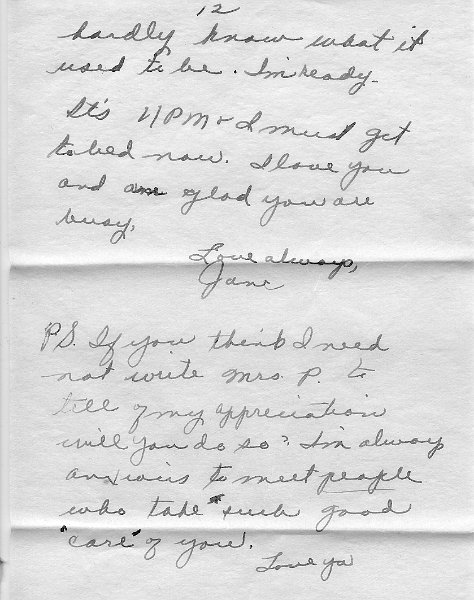 12
hardly know what it
used to be. I'm ready.
It's 11 PM & I must get
to bed now. I love you
and am glad you are
busy.
Love always,
Jane
P.S. If you think I need
not write Mrs. P. to
tell of my appreciation
will you do so? I'm always
anxious to meet people
who take such good
"care" of you.
Love ya